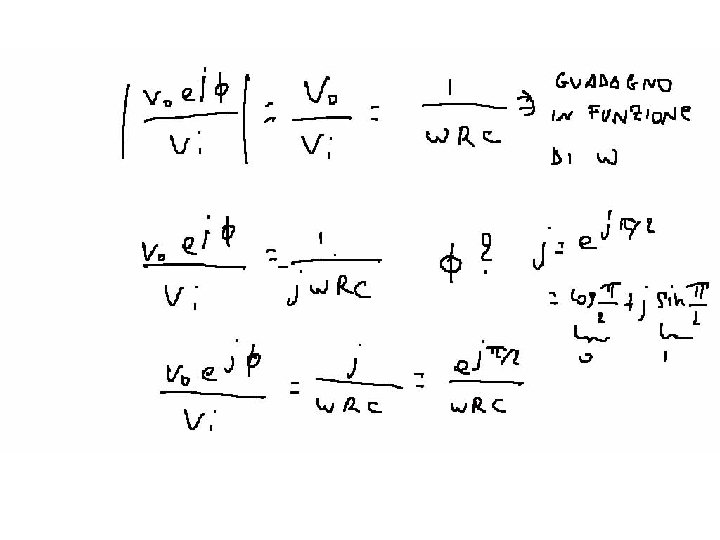 |v₀ e^jϕ / Vi| = V₀ / Vi = 1 / WRC ⇒ GUADAGNO IN FUNZIONE DI W
v₀ e^jϕ / Vi = - 1 / jWRC ϕ? j = e^jπ/2
= cos π/2 + j sin π/2
0 1
v₀ e^jϕ / Vi = j / WRC = e^jπ/2 / WRC